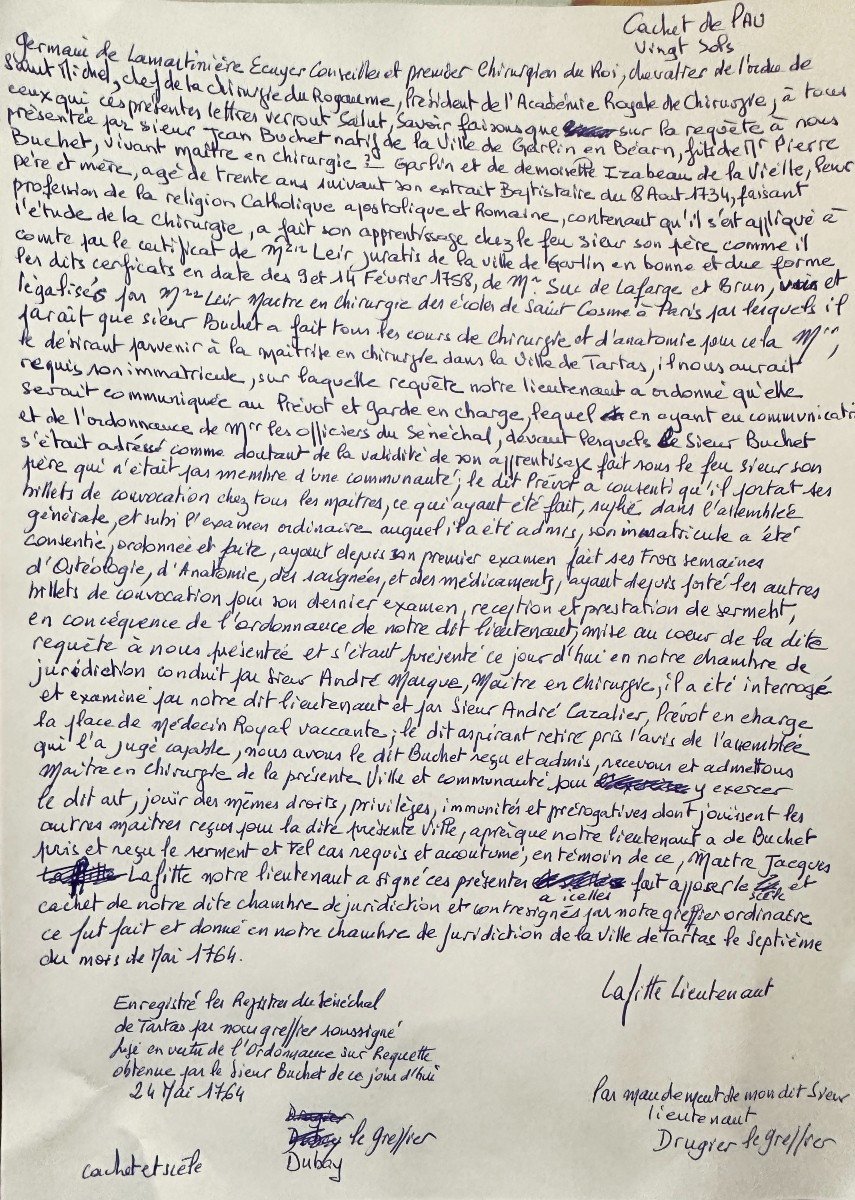 Cachet de PAU
Vingt Sols
Germain de Lamartinière Ecuyer Conseiller et premier Chirurgien du Roi, chevalier de l'ordre de
Saint Michel, chef de la chirurgie du Royaume, Président de l'Académie Royale de Chirurgie, à tous
ceux qui ces présentes lettres verront Salut, Savoir faisons que sur la requête à nous
présentée par sieur Jean Buchet natif de la Ville de Garlin en Béarn, fils de Mr Pierre
Buchet, vivant maître en chirurgie ? Garlin et de demoiselle Izabeau de la Vielle, leur
père et mère, agé de trente ans suivant son extrait Baptistaire du 8 Aout 1734, faisant
profession de la religion Catholique apostolique et Romaine, contenant qu'il s'est appliqué à
l'étude de la chirurgie, a fait son apprentissage chez le feu sieur son père comme il
comte par le certificat de Leir juratis de la ville de Garlin en bonne et due forme
les dits cerficats en date des 9 et 14 Février 1758, de Mr Suc de Lafarge et Brun, vus et
légalisés par Leir Maitre en chirurgie des écoles de Saint Cosme à Paris par lesquels il
parait que sieur Buchet a fait tous les cours de Chirurgie et d'anatomie pour ce la
le désirant parvenir à la maîtrise en chirurgie dans la Ville de Tartas, il nous aurait
requis son immatricule, sur laquelle requête notre lieutenant a ordonné qu'elle
serait communiquée au Prévot et garde en charge, lequel en ayant eu communicati
et de l'ordonnance de Mrr les officiers du Sénéchal, devant lesquels le Sieur Buchet
s'était adréssé comme doutant de la validité de son apprentisage fait sous le feu sieur son
père qui n'était pas membre d'une communauté; le dit Prévot a consenti qu'il portat ses
billets de convocation chez tous les maitres, ce qui ayant été fait, suplié dans l'assemblée
générale, et subi l'examen ordinaire auquel il a été admis, son immatricule a été
consentie, ordonnée et faite, ayant depuis son premier examen fait ses Trois semaines
d'Ostéologie, d'Anatomie, des saignées, et des médicaments, ayant depuis porté les autres
billets de convocation pour son dernier examen, reception et prestation de serment,
en concéquence de l'ordonnance de notre dit lieutenant, mise au coeur de la dite
requête à nous présentée et s'étant présenté ce jour d'hui en notre chambre de
juridiction conduit par Sieur André Marque, Maitre en Chirurgie, il a été interrogé
et examiné par notre dit lieutenant et par Sieur André Cazalier, Prévot en charge
la place de Médecin Royal vaccante; le dit aspirant retiré pris l'avis de l'assemblée
qui l'a jugé capable, nous avons le dit Buchet reçu et admis, recevons et admettons
Maitre en chirurgie de la présente Ville et communauté pour y exercer
le dit art, jouir des mêmes droits, privilèges, immunités et prérogatives dont jouissent les
autres maitres reçus pour la dite présente Ville, après que notre lieutenant a de Buchet
pris et reçu le serment et tel cas requis et accoutumé, en témoin de ce, Maitre Jacques
Lafitte notre lieutenant a signé ces présentes a icelles fait apposer le scèle et
cachet de notre dite chambre de juridiction et contresignés par notre greffier ordinaire
ce fut fait et donné en notre chambre de Juridiction de la Ville de Tartas le septième
du mois de Mai 1764.
Lafitte Lieutenant
Enregistré les Registres du Sénéchal
de Tartas par nous greffier soussigné
en vertu de l'Ordonnance sur Requette
obtenue par le Sieur Buchet de ce jour d'hui
24 Mai 1764
Par mandement de mon dit Sieur
lieutenant
Drugier le greffier
Drugier
Dubay le greffier
Dubay
cachet et scèle